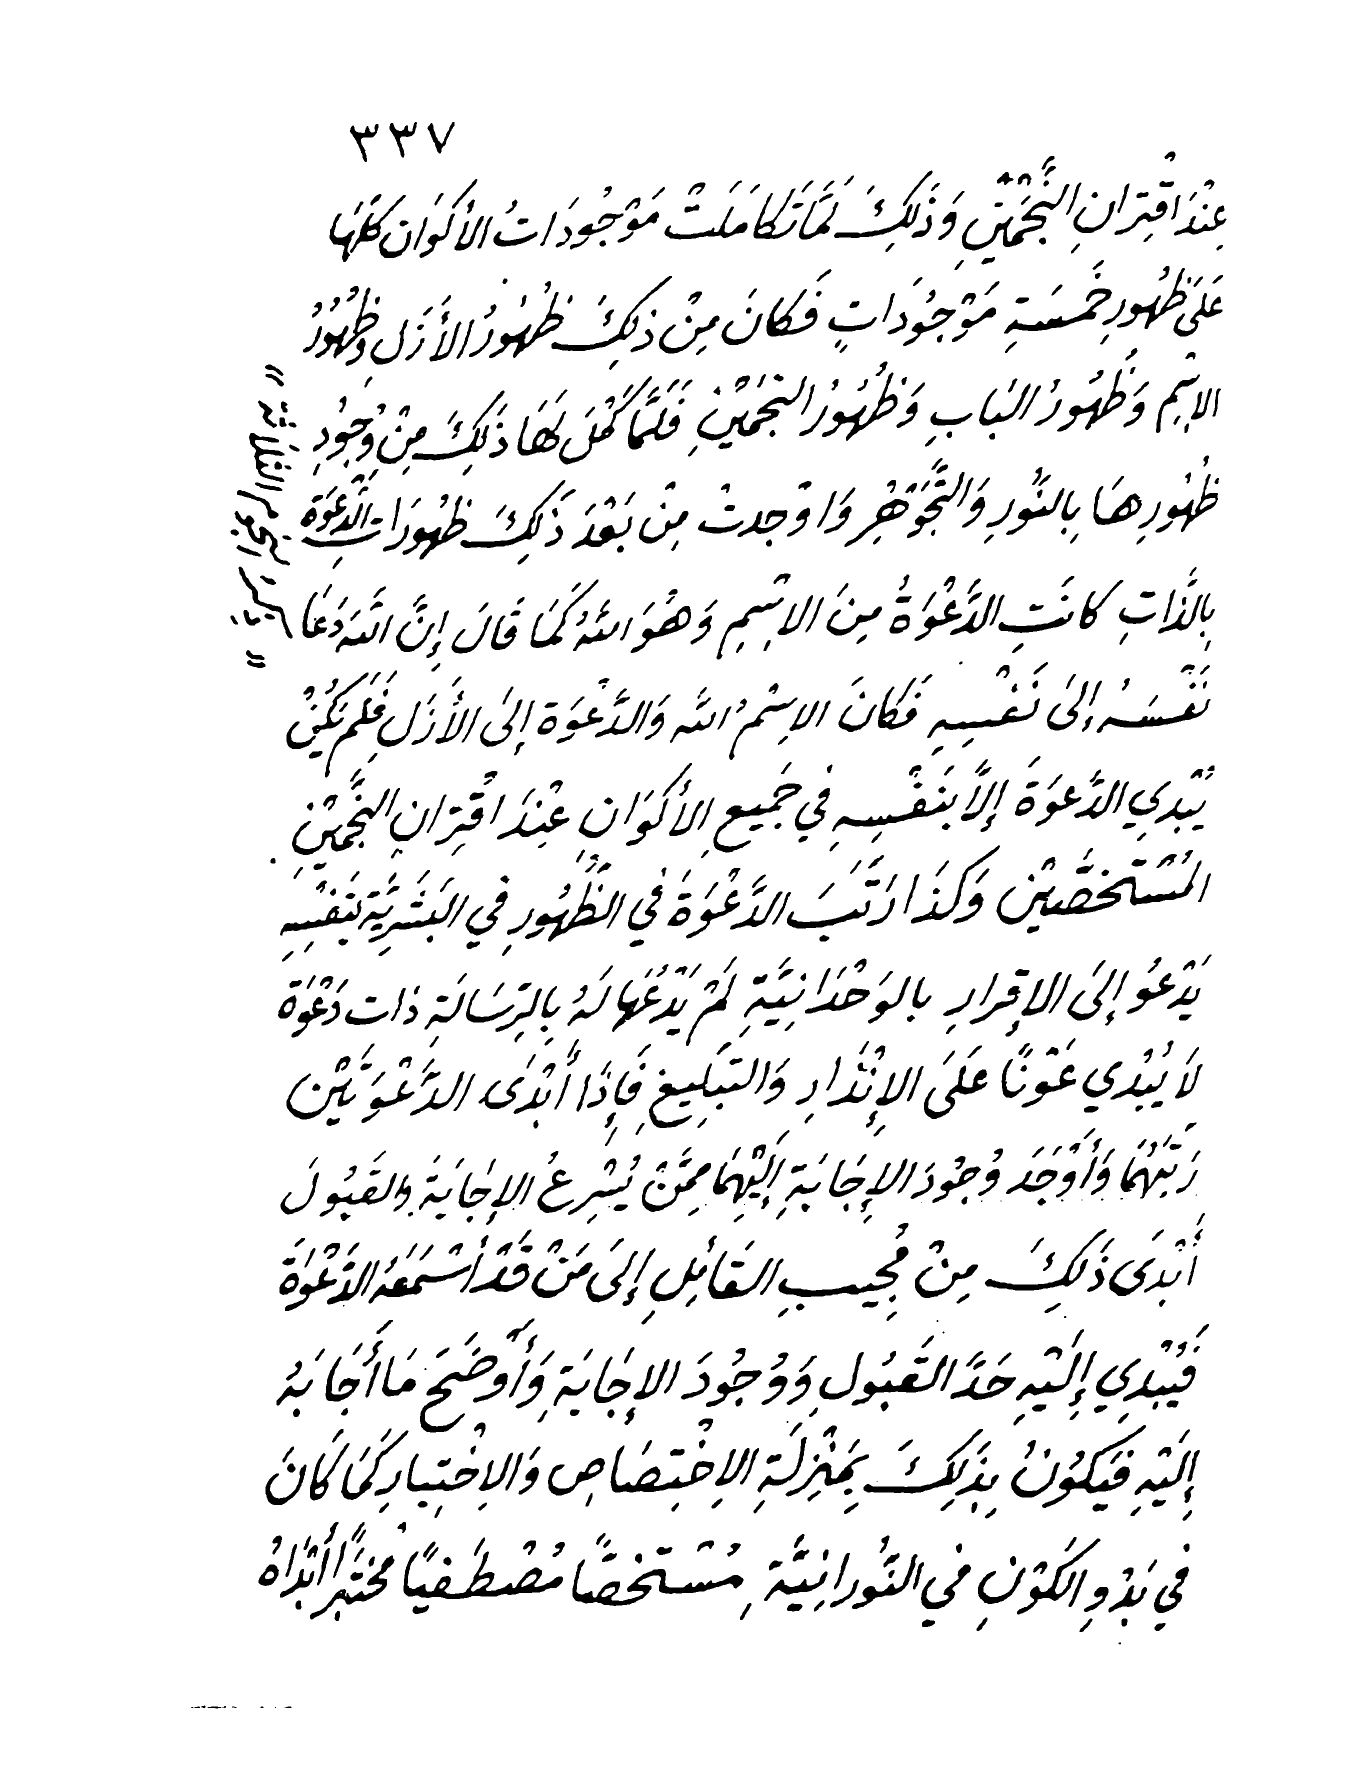 ٣٣٧
عِنْدَ اقْتِرَانِ النَّجْمَيْنِ وَذَلِكَ لَمَّا تَكَامَلَتْ مَوْجُودَاتُ الأَكْوَانِ كُلِّهَا
عَلَى ظُهُورِ خَمْسَةِ مَوْجُودَاتٍ فَكَانَ مِنْ ذَلِكَ ظُهُورُ الأَزَلِ وَظُهُورُ
الإِسْمِ وَظُهُورُ البَابِ وَظُهُورُ النَّجْمَيْنِ فَلَمَّا كَمُلَ لَهَا ذَلِكَ مِنْ وُجُودِ
ظُهُورِهَا بِالنُّورِ وَالتَّجَوْهُرِ وَاوْجِدتْ مِنْ بَعْدَ ذَلِكَ ظُهُورَاتِ الدَّعْوَةِ
بِالذَّاتِ كَانَتِ الدَّعْوَةُ مِنَ الإِسْمِ وَهُوَ اللهُ كَمَا قَالَ إِنَّ اللهَ دَعَا
نَفْسَهُ إِلَى نَفْسِهِ فَكَانَ الإِسْمُ اللهَ وَالدَّعْوَة إِلَى الأَزَلِ فَلَمْ يَكُنْ
يُبْدِي الدَّعوَةَ إِلاَّ بِنَفْسِهِ فِي جَمِيعِ الأَكْوَانِ عِنْدَ اقْتِرَانِ النَّجْمَيْنِ
المُسْتَخَصَّيْنِ وَكَذَا رَتَّبَ الدَّعْوَةَ فِي الظُّهُورِ فِي البَشَرِيَّةِ بِنَفْسِهِ
يَدْعُو إِلَى الإِقرارِ بِالوَحْدَانِيَّةِ لَمْ يَدْعُهَا لَهُ بِالرِّسَالَةِ ذات دَعْوَة
لَا يُبْدِي عَوْنًا عَلَى الإِنْذَارِ وَالتَبْلِيغِ فَإِذَا أَبْدَى الدَّعْوَتَيْنِ
رَتَّبَهُمَا وَأَوْجَدَ وُجُودَ الإِجَابَةِ إِلَيْهِمَا مِمَّنْ يُسْرِعُ الإِجَابَةَ وَالقَبُولَ
أَبْدَى ذَلِكَ مِنْ مُجِيبِ القَائِلِ إِلَى مَنْ قَدْ أَسْمَعَهُ الدَّعْوَةَ
فَيُبْدِي إِلَيْهِ حَدَّ القَبُولِ وَوُجُودَ الإِجَابَةِ وَأَوضَحَ مَا أَجَابَهُ
إِلَيْهِ فَيَكُونُ بِذَلِكَ بِمَنْزِلَةِ الإِخْتِصَاصِ وَالإِخْتِيَارِ كَمَا كَانَ
فِي بَدْوِ الكَوْنِ فِي النُّورَانِيَّةِ مُسْتَخَصًّا مُصْطَفِيًا مُخْتَبِراً أَبْدَاهُ